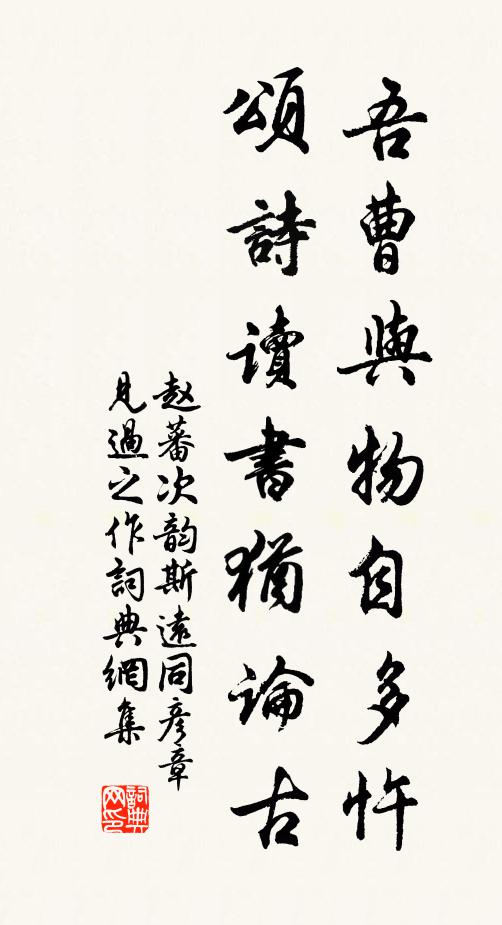 吾曹與物自多忤
頌詩讀書猶論古
赵蕃次韵斯遠同彦章
見過之作詞典網集
詞典网印